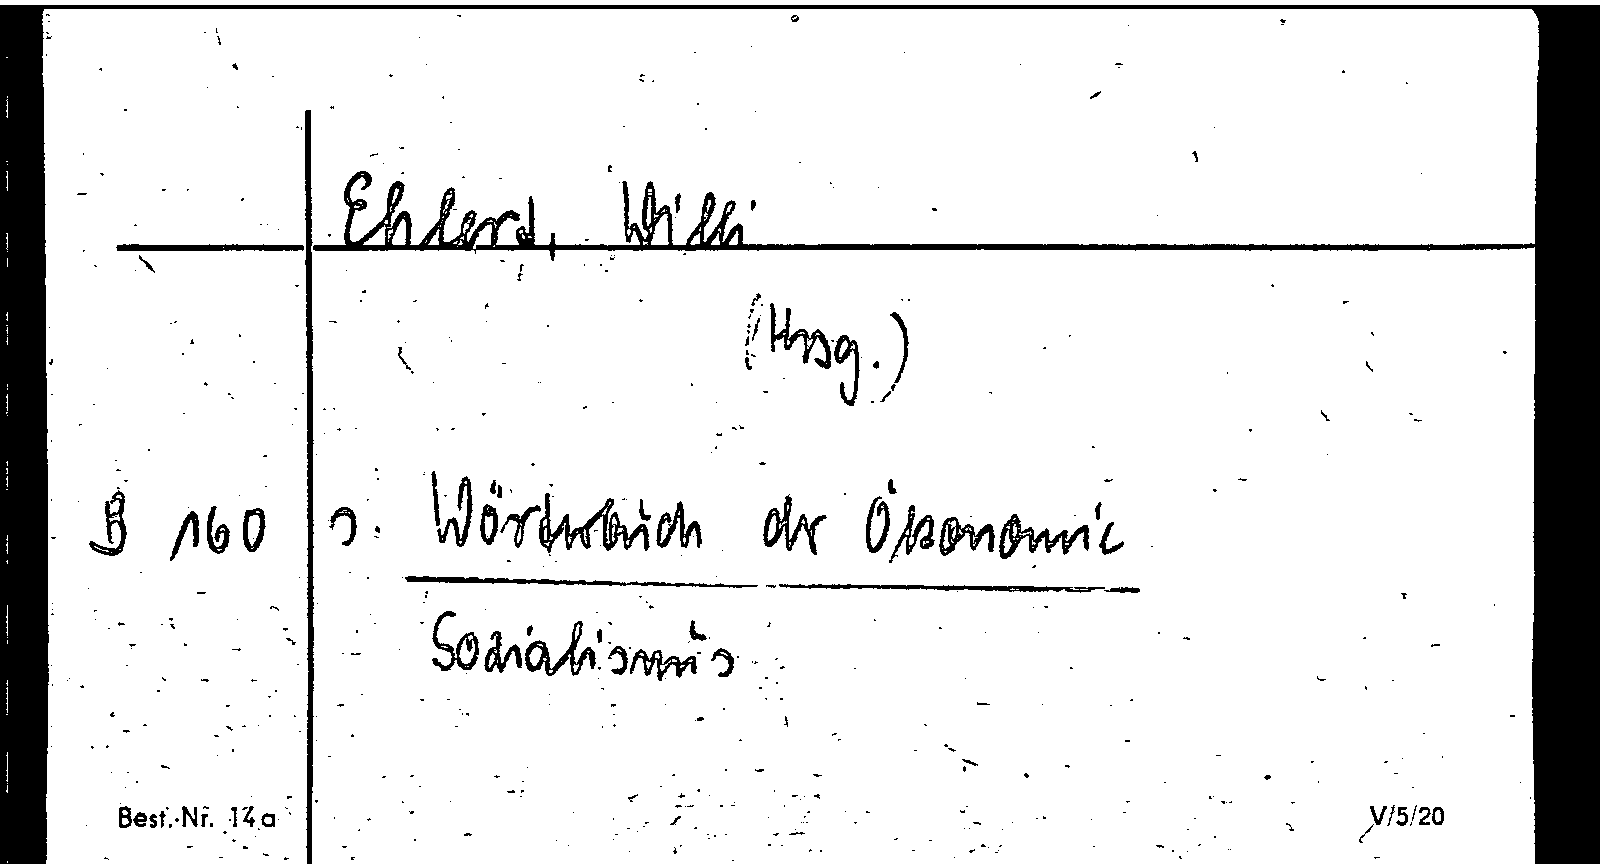 Ehlert, Willi
(Hrsg.)
B 160 s. Wörterbuch der Ökonomie
Sozialismus
Best.-Nr. 14a V/5/20